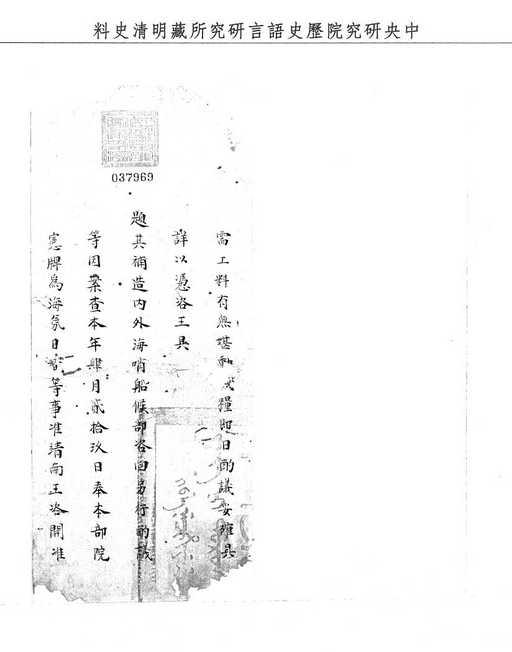 中央研究院歷史語言研究所藏明清史料
037969
需工料有無堪動錢糧即日酌議妥確具
詳以憑咨王具
題其補造內外海哨船候部咨回另行酌議
等因案查本年肆月貳拾玖日奉本部院
憲牌為海氛日等事准靖南王咨開准